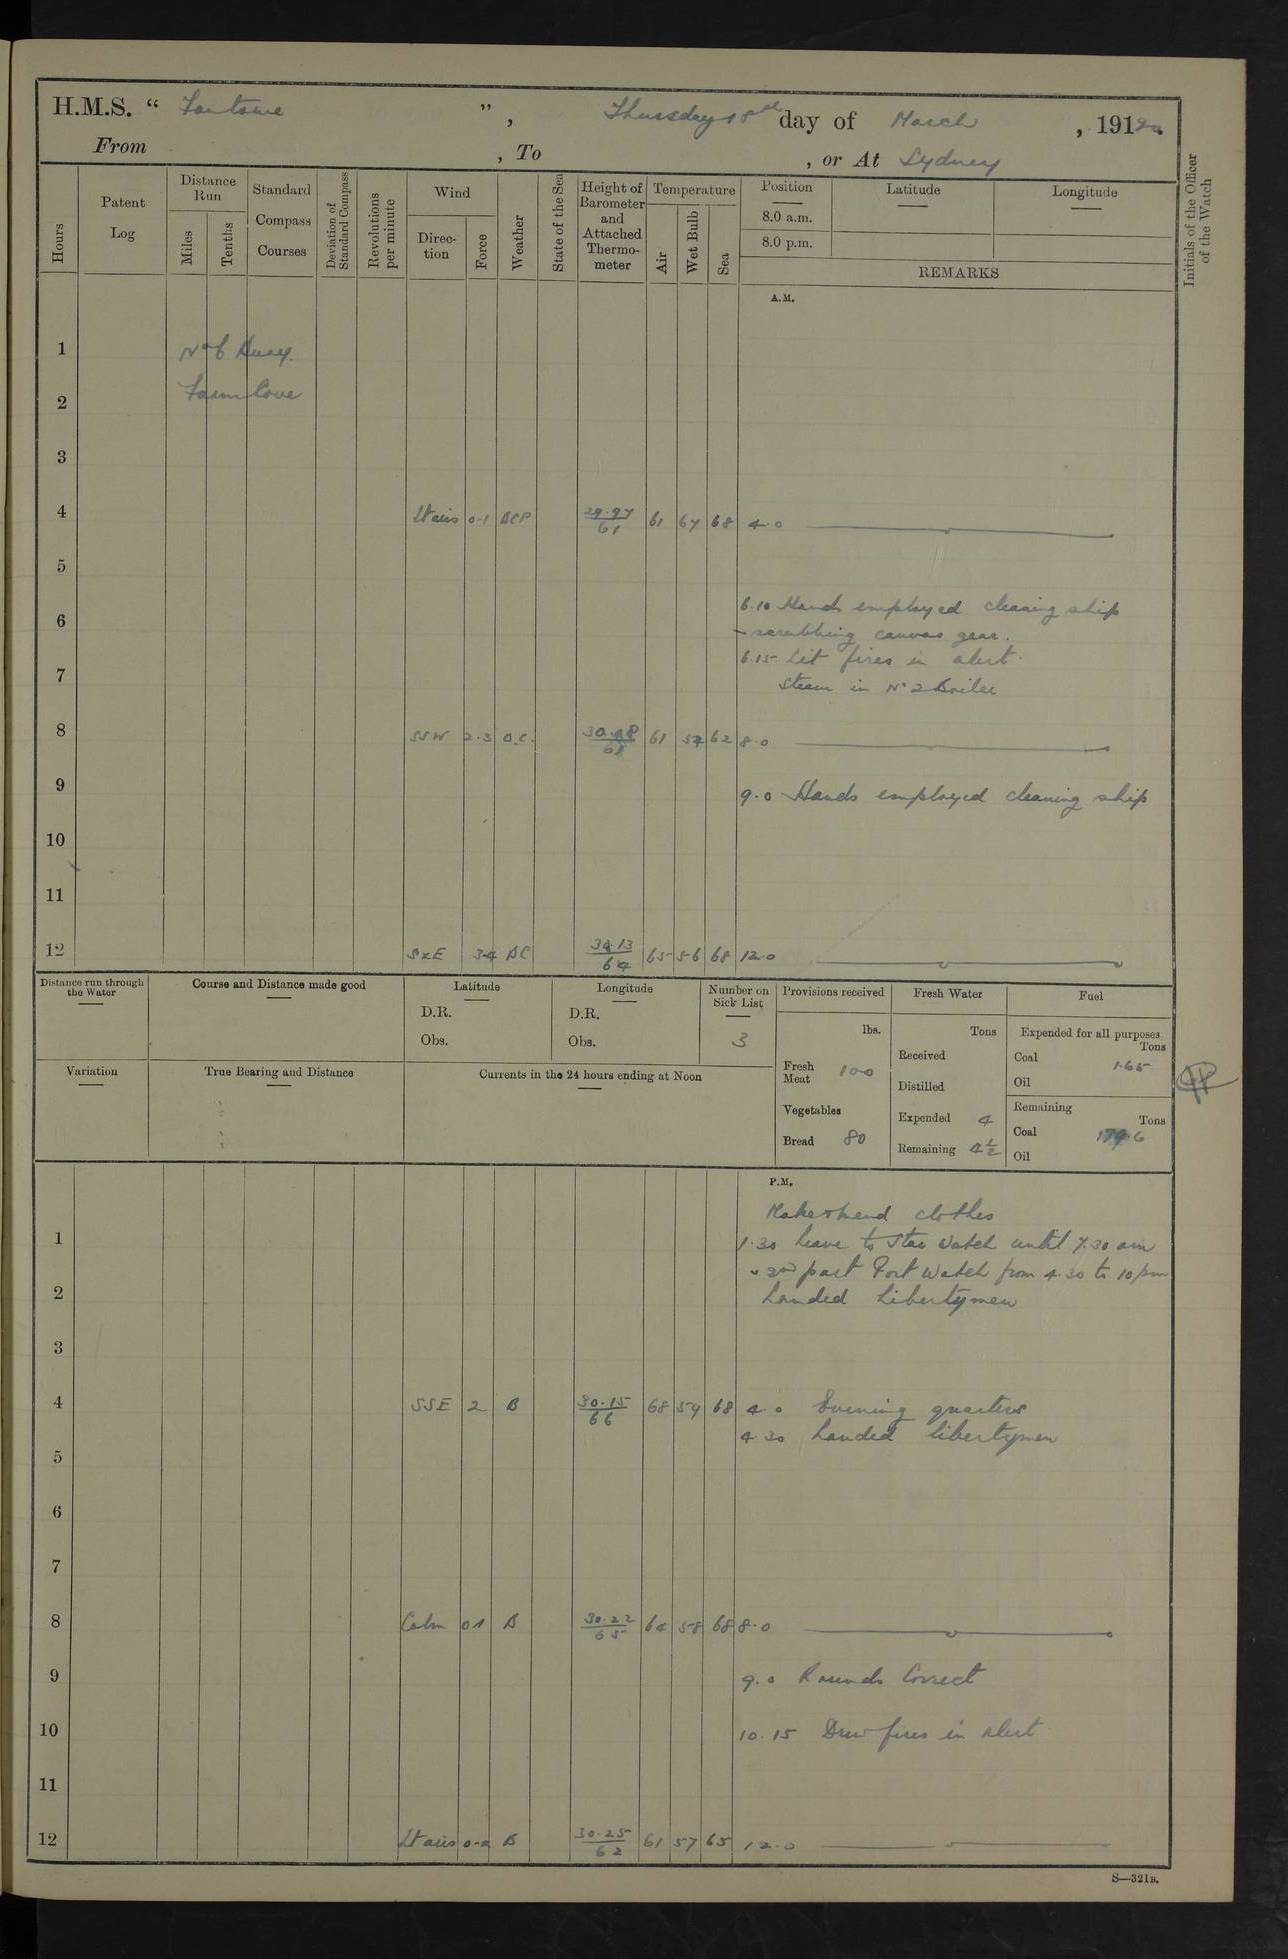 H.M.S. “ Fantome ” , Thursday 18th day of March , 1920.
From , To , or At Sydney
Hours
Patent Log
Distance Run
Miles
Tenths
Standard Compass Courses
Deviation of Standard Compass
Revolutions per minute
Wind
Direction
Force
Weather
State of the Sea
Height of Barometer and Attached Thermometer
Temperature
Air
Wet Bulb
Sea
Position
8.0 a.m.
8.0 p.m.
Latitude
Longitude
REMARKS
Initials of the Officer of the Watch
A.M.
1 No 6 Buoy.
2 Farm Cove
3
4 Lt airs 0-1 BCP 29.97/61 61 67 68 4.0
5
6.10 Hands employed cleaning ship
6
- scrubbing canvas gear.
6.15 Lit fires in alert.
7
Steam in No 2 Boiler
8 SSW 2-3 O.C. 30.08/61 61 57 62 8.0
9 9.0 Hands employed cleaning ship
10
11
12 SxE 3-4 BC 30.13/64 65 56 68 12.0
Distance run through the Water
Course and Distance made good
Latitude
D.R.
Obs.
Longitude
D.R.
Obs.
Number on Sick List
3
Variation
True Bearing and Distance
Currents in the 24 hours ending at Noon
Provisions received
lbs.
Fresh Meat 100
Vegetables
Bread 80
Fresh Water
Tons
Received
Distilled
Expended 4
Remaining 4½
Fuel
Expended for all purposes
Tons
Coal 1.65
Oil
Remaining
Tons
Coal 179.6
Oil
P.M.
Make & mend clothes
1 1.30 Leave to Star Watch until 7.30 am
& 2nd part Port Watch from 4.30 to 10 pm
2 Landed Libertymen
3
4 SSE 2 B 30.15/66 68 59 68 4.0 Evening quarters
4.30 Landed libertymen
5
6
7
8 Calm 0-1 B 30.22/65 64 58 68 8.0
9 9.0 Rounds Correct
10 10.15 Drew fires in alert
11
12 Lt airs 0-2 B 30.25/62 61 57 65 12.0
S—321B.